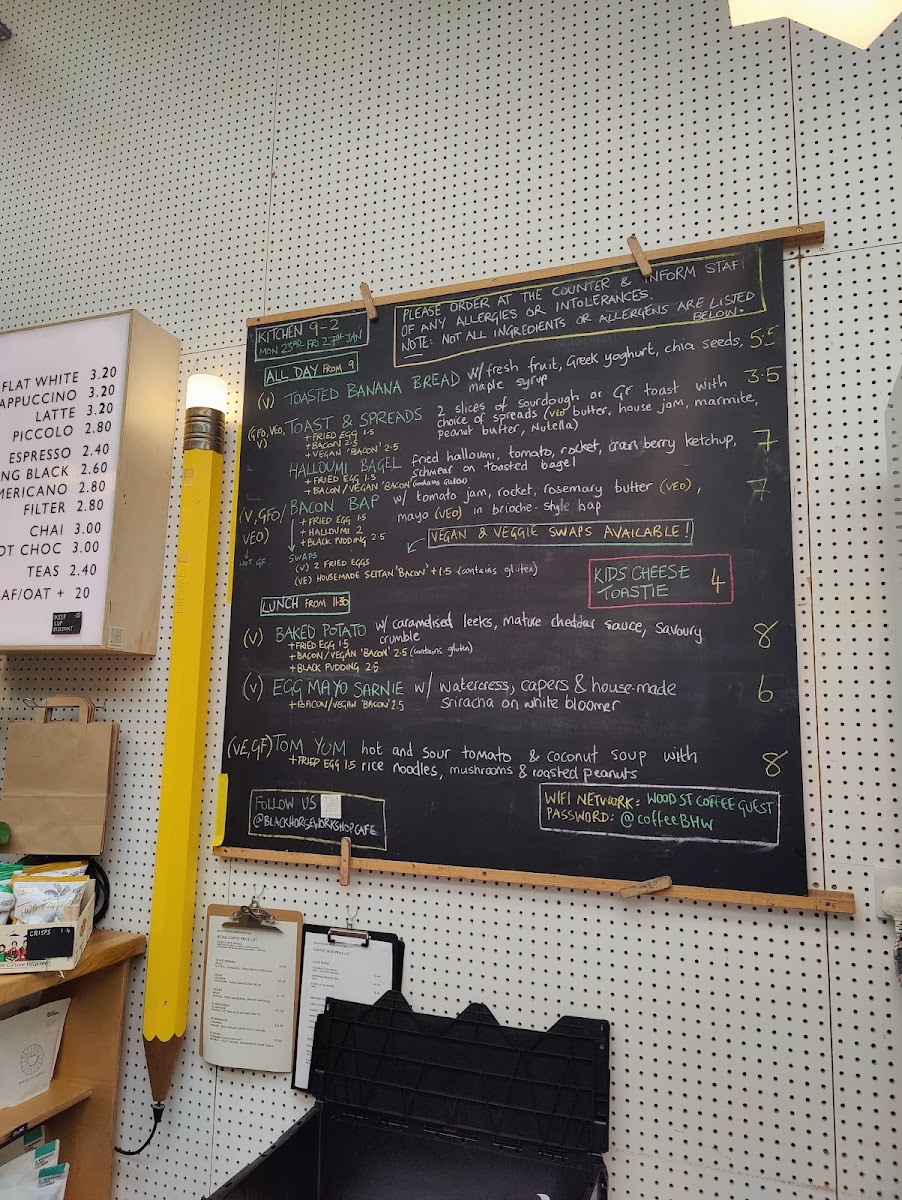 FLAT WHITE 3.20
APPUCCINO 3.20
LATTE 3.20
PICCOLO 2.80
ESPRESSO 2.40
NG BLACK 2.60
MERICANO 2.80
FILTER 2.80
CHAI 3.00
OT CHOC 3.00
TEAS 2.40
AF/OAT + 20
KEEP CUP DISCOUNT
KITCHEN 9-2
MON 23RD FRI 27TH JAN
PLEASE ORDER AT THE COUNTER & INFORM STAFF
OF ANY ALLERGIES OR INTOLERANCES.
NOTE: NOT ALL INGREDIENTS OR ALLERGENS ARE LISTED
BELOW.
ALL DAY FROM 9
(V) TOASTED BANANA BREAD w/ fresh fruit, Greek yoghurt, chia seeds, 5.5
maple syrup
(GFO, VEO, V) TOAST & SPREADS 2 slices of sourdough or GF toast with 3.5
+ FRIED EGG 1.5 choice of spreads (VEO butter, house jam, marmite,
+ BACON 2.5 peanut butter, Nutella)
+ VEGAN 'BACON' 2.5
HALLOUMI BAGEL fried halloumi, tomato, rocket, cranberry ketchup, 7
+ FRIED EGG 1.5 schmear on toasted bagel
+ BACON/VEGAN 'BACON' (contains gluten)
(V, GFO/ VEO) BACON BAP w/ tomato jam, rocket, rosemary butter (VEO), 7
+ FRIED EGG 1.5 mayo (VEO) in brioche-style bap
+ HALLOUMI 2
+ BLACK PUDDING 2.5
NOT GF
VEGAN & VEGGIE SWAPS AVAILABLE!
SWAPS
(V) 2 FRIED EGGS
(VE) HOUSEMADE SEITAN 'BACON' + 1.5 (contains gluten)
KIDS CHEESE
TOASTIE 4
LUNCH FROM 11:30
(V) BAKED POTATO w/ caramelised leeks, mature cheddar sauce, savoury 8
+ FRIED EGG 1.5 crumble
+ BACON/VEGAN 'BACON' 2.5 (contains gluten)
+ BLACK PUDDING 2.5
(V) EGG MAYO SARNIE w/ watercress, capers & house-made 6
+ BACON/VEGAN 'BACON' 2.5 sriracha on white bloomer
(VE, GF) TOM YUM hot and sour tomato & coconut soup with 8
+ FRIED EGG 1.5 rice noodles, mushrooms & roasted peanuts
FOLLOW US
@BLACKHORSEWORKSHOPCAFE
WIFI NETWORK: WOOD ST COFFEE GUEST
PASSWORD: @coffeeBHW
CRISPS 1.4